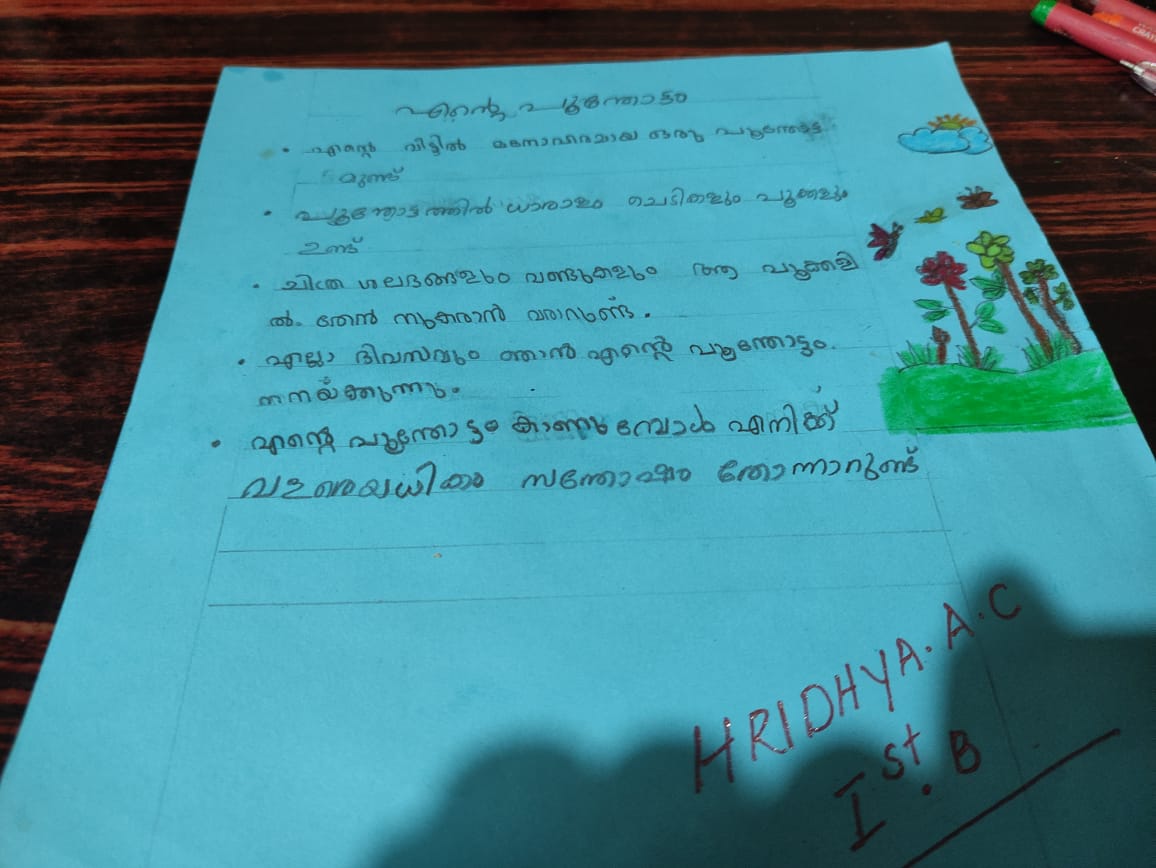 എന്റെ പൂന്തോട്ടം
• എന്റെ വീട്ടിൽ മനോഹരമായ ഒരു പൂന്തോട്ട
മുണ്ട്
• പൂന്തോട്ടത്തിൽ ധാരാളം ചെടികളും പൂക്കളും
ഉണ്ട്
• ചിത്ര ശലഭങ്ങളും വണ്ടുകളും ആ പൂക്കളി
ൽ. തേൻ നുകരാൻ വരാറുണ്ട്.
• എല്ലാ ദിവസവും ഞാൻ എന്റെ പൂന്തോട്ടം.
നനയ്ക്കുന്നു.
• എന്റെ പൂന്തോട്ടം കാണു മ്പോൾ എനിക്ക്
വളരെയധികം സന്തോഷം തോന്നാറുണ്ട്
HRIDHYA. A.C
Ist. B